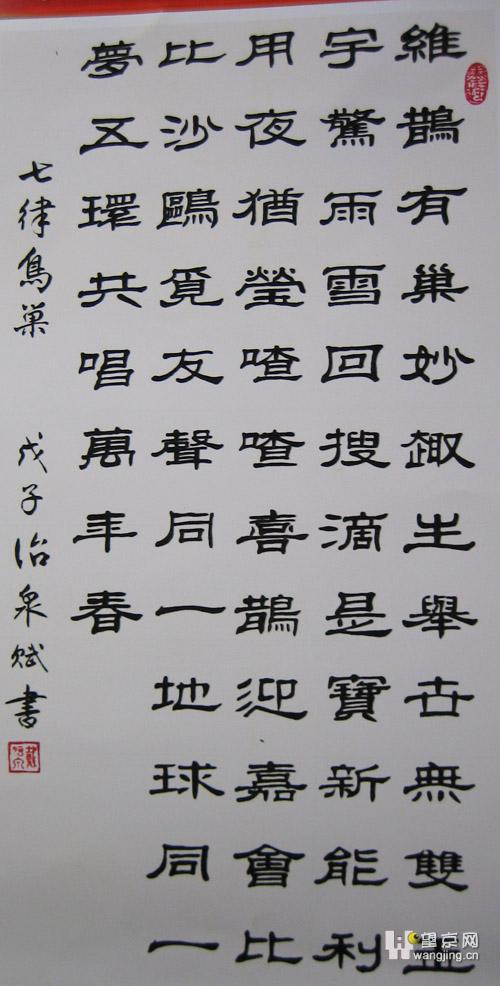 維鵲有巢妙趣生舉世無雙
宇驚雨雪回搜滴是寶新能利
用夜猶瑩喳喳喜鵲迎嘉會比
比沙鷗覓友聲同一地球同一
夢五環共唱萬年春
七律鳥巢 戊子治泉賦書
望京网
wangjing.cn